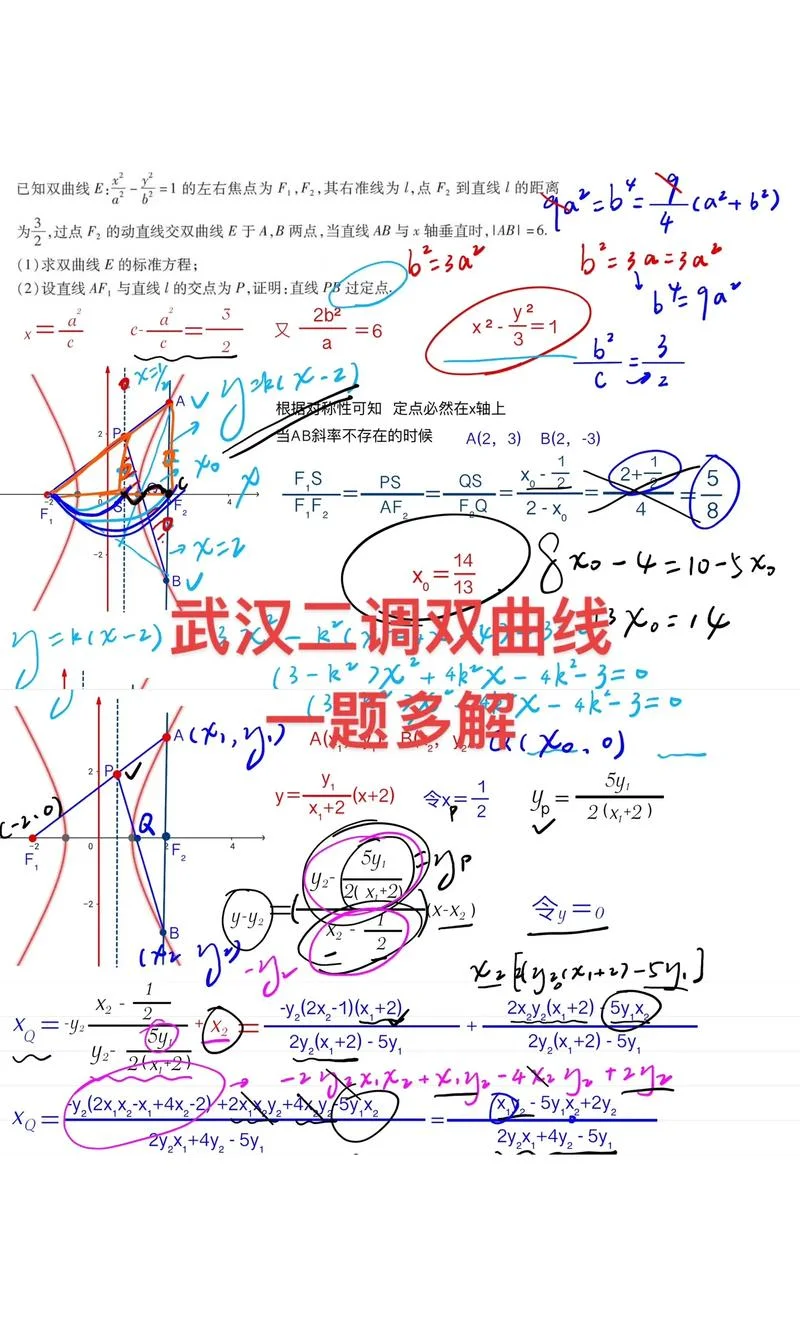 已知双曲线 E:x²/a² - y²/b² = 1 的左右焦点为 F₁,F₂,其右准线为 l,点 F₂ 到直线 l 的距离
为 3/2,过点 F₂ 的动直线交双曲线 E 于 A,B 两点,当直线 AB 与 x 轴垂直时,|AB| = 6.
(1)求双曲线 E 的标准方程;
(2)设直线 AF₁ 与直线 l 的交点为 P,证明:直线 PB 过定点.
9a² = b⁴ = 9/4 (a² + b²)
b² = 3a²
b² = 3a = 3a²
b⁴ = 9a²
x = a²/c
c - a²/c = 3/2
又 2b²/a = 6
x² - y²/3 = 1
b²/c = 3/2
x = 1/2
y = k(x-2)
根据对称性可知 定点必然在x轴上
当AB斜率不存在的时候 A(2, 3) B(2, -3)
A
P
2
x₀
F₁S/F₁F₂ = PS/AF₂ = QS/F₂Q = (x₀ - 1/2)/(2 - x₀) = (2 + 1/2)/4 = 5/8
-2
F₁
S
F₂
4
x = 2
-2
B
x₀ = 14/13
8x₀ - 4 = 10 - 5x₀
13x₀ = 14
武汉二调双曲线
y = k(x-2)
(3-k²)x² + 4k²x - 4k² - 3 = 0
一题多解
A (x₁, y₁)
(x₀, 0)
y = y₁/(x₁+2) (x+2)
令xₚ = 1/2
yₚ = 5y₁/2(x₁+2)
P
2
(-2, 0)
Q
-2
0
2
4
F₁
F₂
-2
B
(x₂ y₂)
y-y₂ = (y₂ - 5y₁/2(x₁+2))/(x₂ - 1/2) (x-x₂)
= yₚ
-y₂
令y = 0
x₂[2(y₂(x₁+2) - 5y₁]
x_Q = -y₂ (x₂ - 1/2)/(y₂ - 5y₁/2(x₁+2)) + x₂ = -y₂(2x₂-1)(x₁+2)/(2y₂(x₁+2) - 5y₁) + (2x₂y₂(x₁+2) - 5y₁x₂)/(2y₂(x₁+2) - 5y₁)
-2y₂x₁x₂ + x₁y₂ - 4x₂y₂ + 2y₂
x_Q = (-y₂(2x₁x₂-x₁+4x₂-2) + 2x₁x₂y₂+4x₂y₂-5y₁x₂)/(2y₂x₁+4y₂ - 5y₁) = (x₁y₂ - 5y₁x₂+2y₂)/(2y₂x₁+4y₂ - 5y₁)